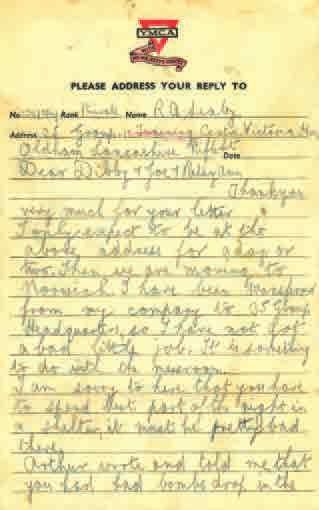 YMCA
PLEASE ADDRESS YOUR REPLY TO
No Rank Private Name R A
Address 35 Group Training Victoria
Oldham Lancashire Date
Dear Dibby & Joe &
Thankyou
very much for your letter
I only expect to be at the
above address for a day or
two. Then we are moving to
Norwich. I have been
from my company to 35 Group
Headquarters, so I have not got
a bad little job. It is something
to do with the messroom
I am sorry to here that you have
to spend that part of the night in
a shelter, it must be pretty bad
there.
Arthur wrote and told me that
you had had bombs drop in the